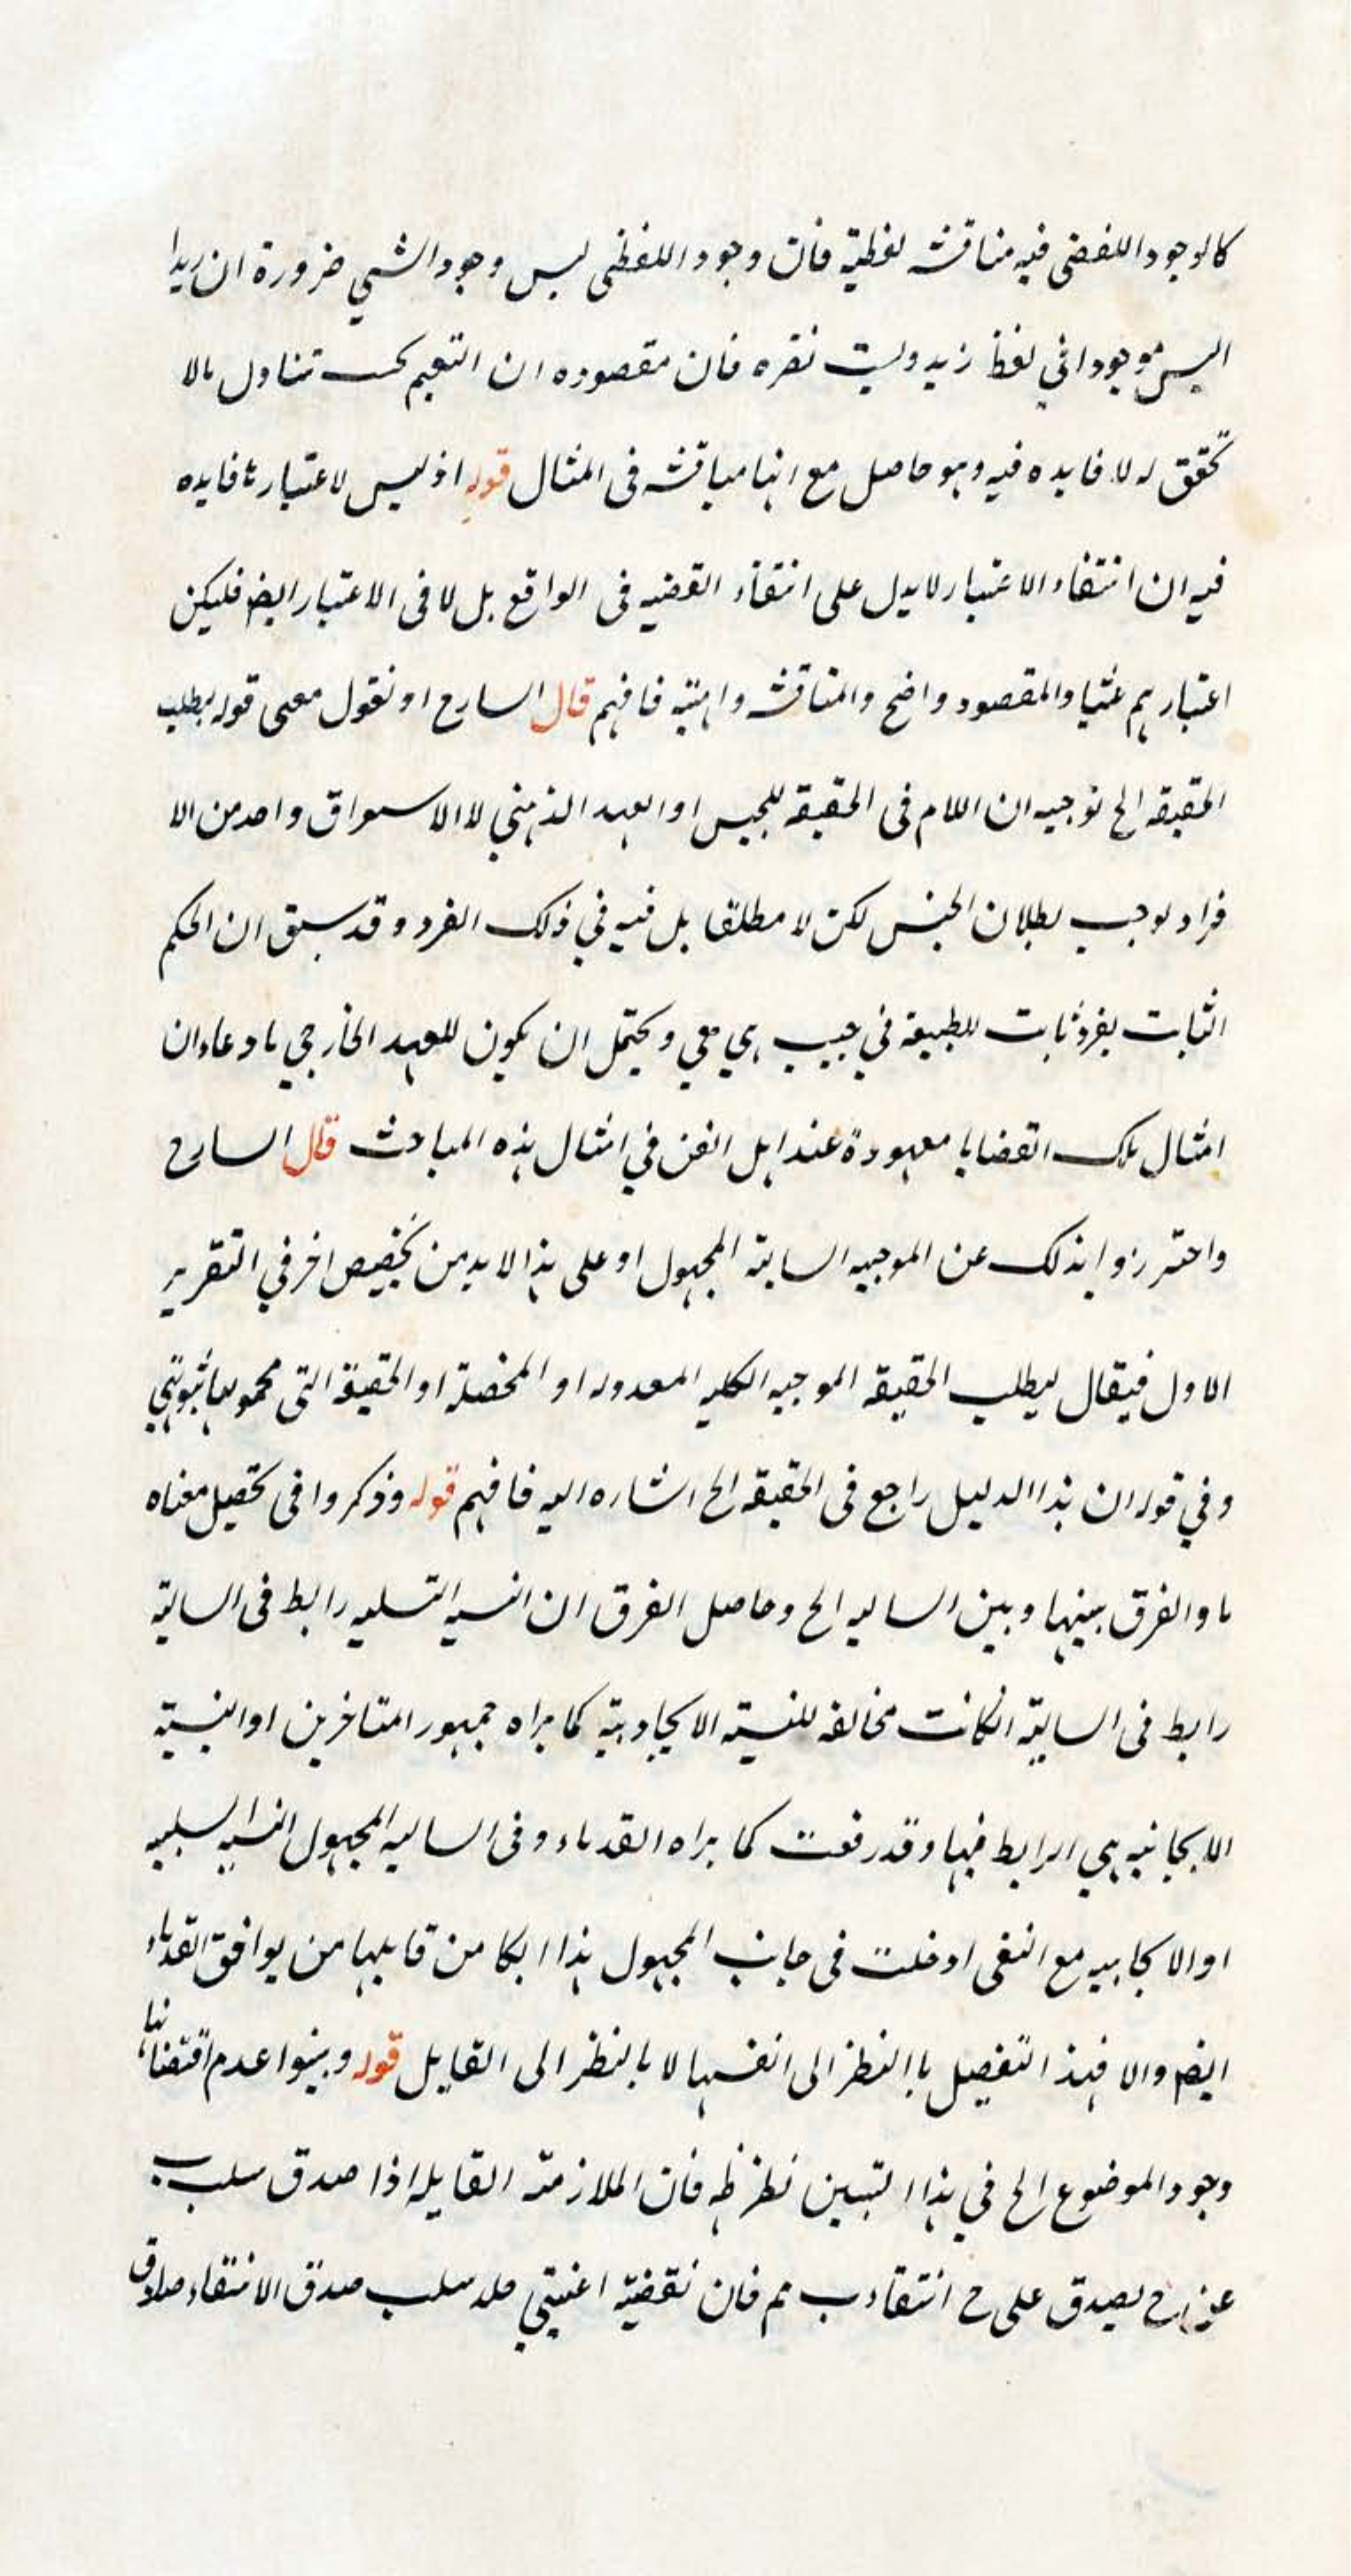 كالوجود اللفضى فيه مناقشه لفظية فان وجود اللفظى ليس وجود الشي ضرورة ان زيدا
ليس موجودا في لفظ زيد وليت نقره فان مقصوده ان التعيم كحت تناول مالا
تحقق له لا فايده فيه وهو حاصل مع انها مناقشه فى المثال قوله اذ ليس لاعتبارها فايده
فيه ان انتفاء الاعتبار لا يدل على انتفاء القضيه فى الواقع بل لا فى الاعتبار ايضم فليكن
اعتبارهم عثيا والمقصود واضح والمناقشه واهنيه فافهم قال السارح او نقول معى قوله يطلب
الحقيقه الخ توجيه ان اللام فى الحقيقه للجيس او العهد الذهني لا الاسعراق واحد من الا
فراد يوجب بطلان الجنس لكن لا مطلقا بل فيه في ذلك الفرد وقد سبق ان الحكم
الثبات بفرد ثابت للطبيعة في جيب هي هي ويحتمل ان يكون للعهد الخارجي بادعاء ان
امثال تلك القضايا معهودة عند اهل الفن في امثال هذه المباحث قال السارح
واحترزوا بذلك عن الموجبه السابته المجهول او على هذا لا بد من تخصيص اخر في التقرير
الاول فيقال ليطلب الحقيقه الموجبه الكليه المعدوله او المخصلة او الحقيقة التى محمولها ثبوتيّ
وفي قوله ان هذا الدليل راجع فى الحقيقه الخ اشاره اليه فافهم قوله وذكروا فى تحصيل معناه
ما والفرق بينها وبين السالبه الخ وحاصل الفرق ان النسبه السلبيه رابط فى السابته
رابط فى السابته انكانت مخالفه للنسبته الايجادبته كما يراه جمهور المتاخرين او النسبته
الايجانبيه هي الرابط فيها وقد رفعت كما يراه القدماء وفى السالبه المجهول النسبه السلبيه
او الايجابيه مع النفى ادخلت فى جانب المجهول هذا انكا من قايلها من يوافق القدماء
ايضم والا فهذا التفصيل باالنظر الى انفسها لا باالنظر الى القايل قوله وبينوا عدم اقتضائها
وجود الموضوع الخ في هذا التبيين نظر ظه فان الملازمته القايله اذا صدق سلب ب
عن ح يصدق على ح انتفاء ب مم فان نقضيه اعنيتي سلب صدق الانتفاء صادق